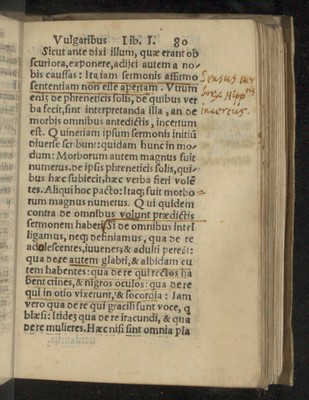 Vulgaribus Lib. I. 80
Sicut ante dixi illum, quæ erant ob
scuriora, exponere, adijci autem a no-
bis caussas: Ita iam sermonis affirmo
sententiam non esse apertam. Vtrum
eni; de phreneticis solis, de quibus ver
ba fecit, sint interpretanda illa, an de
morbis omnibus antedictis, incertum
est. Quinetiam ipsum sermonis initiũ
diuerse scribunt: quidam hunc in mo-
dum: Morborum autem magnus fuit
numerus. de ijs phreneticis solis, qui-
bus hæc subiecit, hæc verba fieri volẽ
tes. Aliqui hoc pacto: Itaq; fuit morbo-
rum magnus numerus. Qui quidem
contra de omnibus volunt prædictis
sermonem haberi. Si de omnibus intel
ligamus, neq; definiamus, qua de re
adolescentes, iuuenes; & adulti perêãt:
qua de re autem glabri, & albidam cu
tem habentes: qua de re qui rectos ha
bent crines, & nigros oculos: qua de re
qui in otio vixerunt, & socordia: Iam
vero qua de re qui gracili sunt voce, q̃
blæsi: Itidẽ; qua de re iracundi, & qua
de re mulieres. Hæc nisi sint omnia pla
Sensus uer
borx Hipp
incertus.